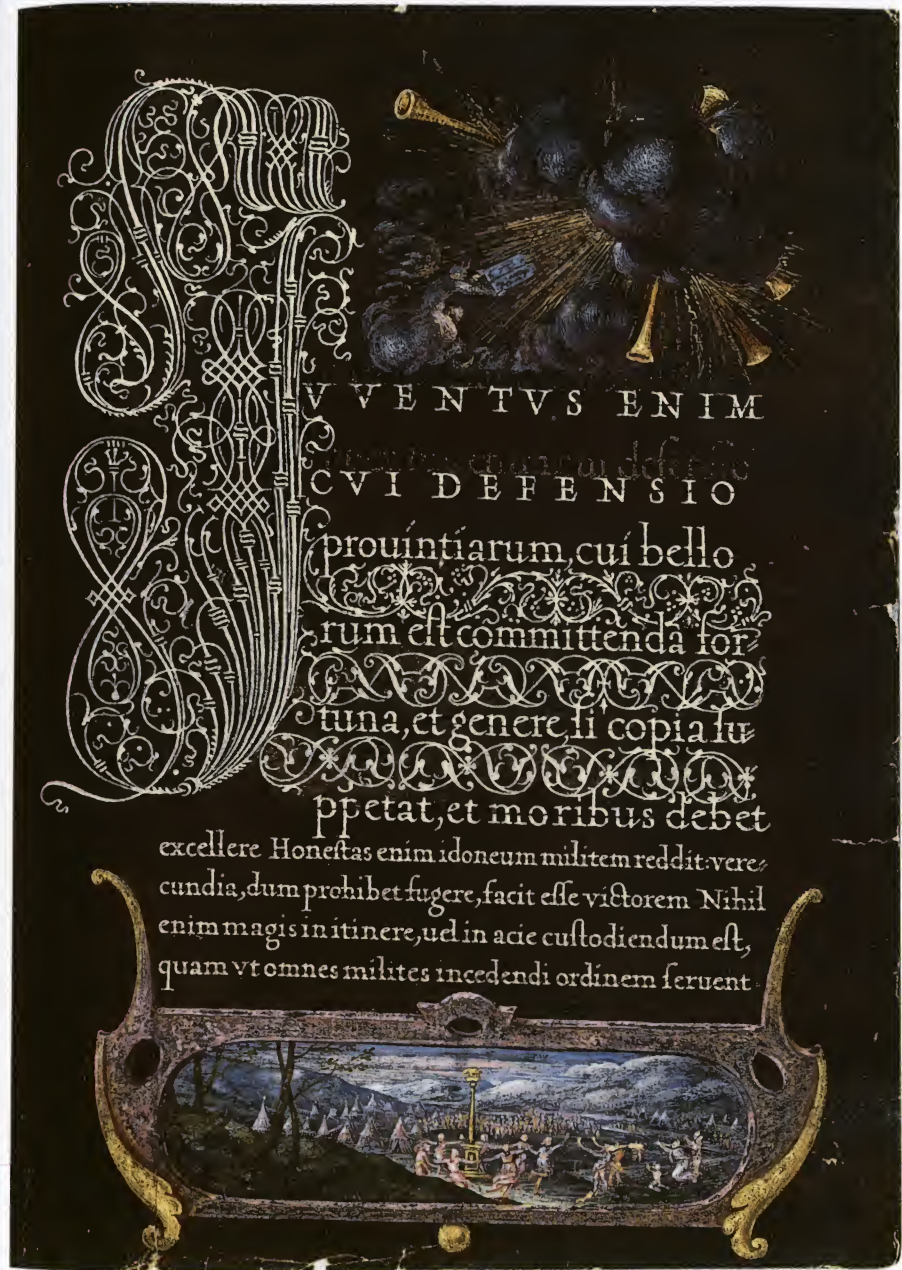 VVENTVS ENIM
CVI DEFENSIO
prouintiarum, cui bello
rum eſt committenda for⸗
tuna, et genere, ſi copia ſu⸗
ppetat, et moribus debet
excellere Honeſtas enim idoneum militem reddit: vere⸗
cundia, dum prohibet fugere, facit eſſe victorem Nihil
enim magis in itinere, uel in acie cuſtodiendum eſt,
quam vt omnes milites incedendi ordinem ſeruent